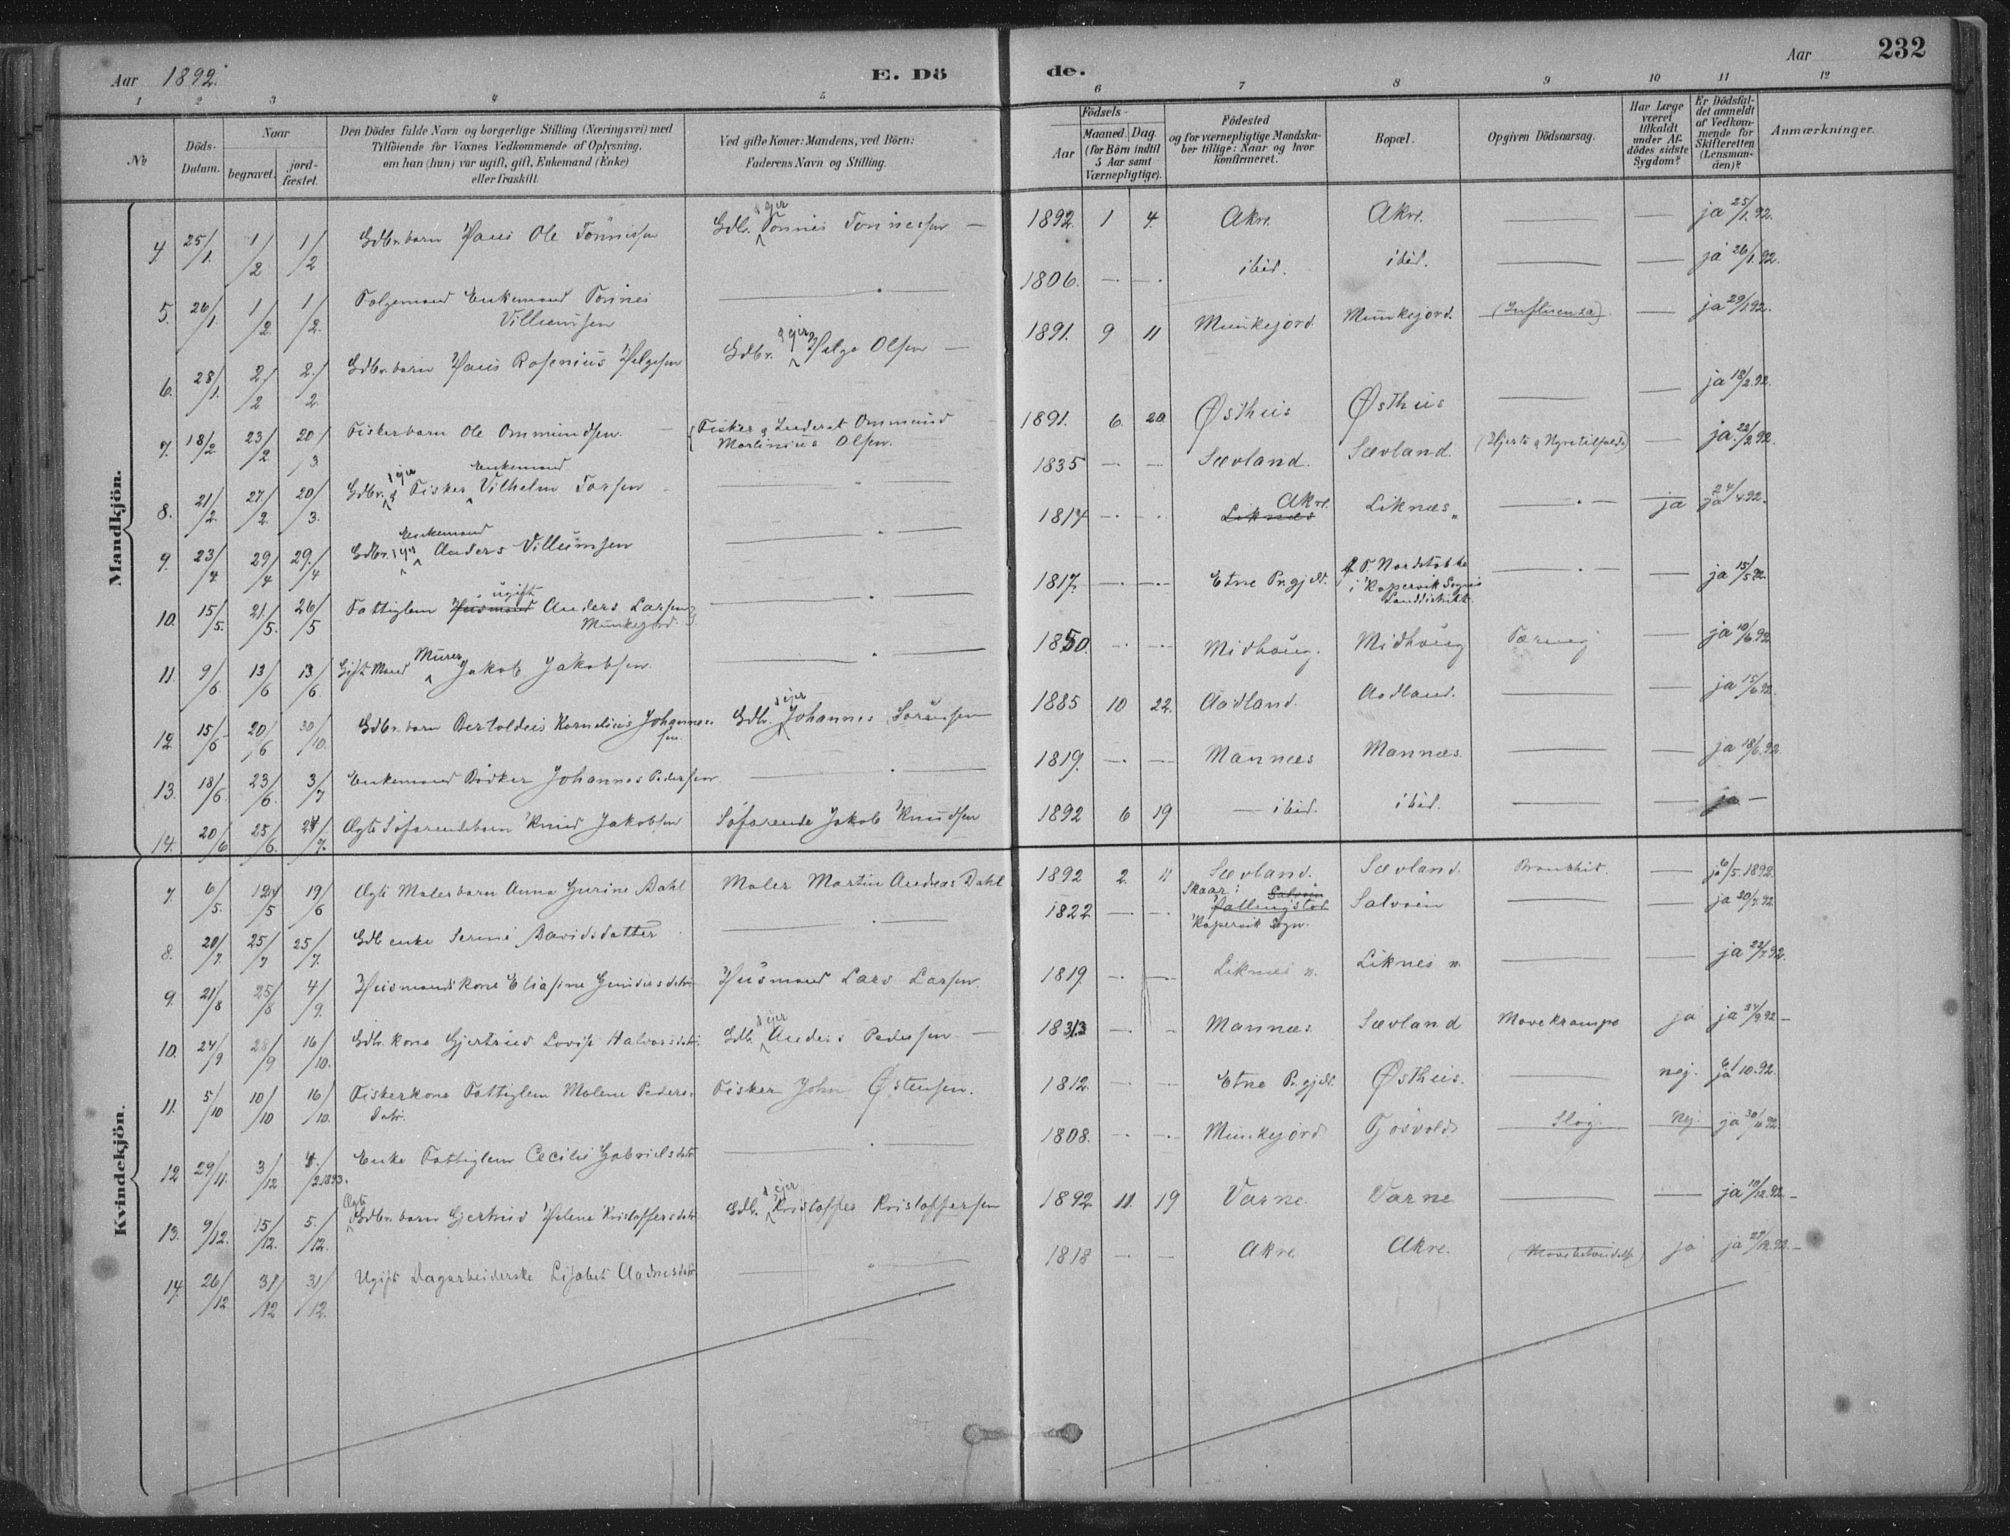 Aar 1892.
E. Dö
de.
Aar
232
1 2 3 4 5 6 7 8 9 10 11 12
No
Döds-
Datum.
Naar
begravet.
jord-
fæstet.
Den Dödes fulde Navn og borgerlige Stilling (Næringsvei) med
Tilföiende for Voxnes Vedkommende af Oplysning,
om han (hun) var ugift, gift, Enkemand (Enke)
eller fraskilt.
Ved gifte Koner: Mandens, ved Börn:
Faderens Navn og Stilling.
Födsels-
Aar
Maaned. Dag.
(for Börn indtil
5 Aar samt
Værnepligtige).
Födested
og for værnepligtige Mandska-
ber tillige: Naar og hvor
konfirmeret.
Bopæl.
Opgiven Dödsaarsag.
Har Læge
været
tilkaldt
under Af-
dödes sidste
Sygdom?
Er Dödsfal-
det anmeldt
af Vedkom-
mende for
Skifteretten
(Lensman-
den)?
Anmærkninger.
Mandkjön.
4. 25/1. 1/2 1/2 Gdbr. barn Hans Ole Tönnessen Gdbr. sejer Tönnes Tönnessen — 1892. 1 4. Akre. Akre. — — ja 25/1.92.
5. 26/1. 1/2. 1/2. Folgemand Enkemand Tönnes
Villumsen — 1806. — — ibid. ibid. — — ja 26/1.92.
6. 28/1. 2/2 2/2. Gdbr. barn Hans Rosenius Helgesen Gdbr. sejer Helge Olsen — 1891. 9 11 Munkejord. Munkejord. (Influensa). — ja 29/1.92.
7. 18/2 23/2. 20/3. Fiskerbarn Ole Ommundsen. Fisker & Inderst Ommund
Martinius Olsen. 1891. 6. 20 Østhus Østhus — — ja 18/2.92.
8. 21/2. 27/2. 20/3. Gdbr. sejer & Fisker Enkemand Vilhelm Torsen — 1835 — — Sævland. Sævland. (Hjerte & Nyretilfælde) — ja. 22/2.92.
9. 23/4 29/4 29/4 Gdbr. sejer Enkemand Anders Villumsen — 1817 — — Liknæs Akre. Liknæs — ja ja 24/4.92.
10. 15/5. 21/5. 26/5 Fattiglem Husmand ugift Anders Larsen
Munkejord. — 1817. — — Etne Pr.gjeld. P. T. Nordstokke
i Kopervik Sogns
Landdistrikt. — — ja 15/5.92.
11. 9/6. 13/6 13/6. Gift Mand Murer Jakob Jakobsen. — 1850. — — Midhaug. Midhaug Tæring — ja 10/6.92.
12. 15/6 20/6 30/10. Gdbr. barn Bertoldus Kornelius Johannes-
sen. Gdbr. sejer Johannes Sörensen 1885 10 22. Aadland. Aadland. — — ja 15/6.92.
13. 18/6. 23/6. 3/7 Enkemand Bödker Johannes Pedersen — 1819. — — Mannæs Mannæs. — — ja 18/6.92
14. 20/6 25/6. 24/7. Ægte Söfarendebarn Knud Jakobsen Söfarende Jakob Knudsen 1892 6 19 — ibid. ibid. — — ja —
Kvindekjön.
7. 6/5. 12/5 19/6 Ægte Malerbarn Anna Gurine Dahl Maler Martin Andreas Dahl 1892 2. 11 Sævland. Sævland. Bronchit. — ja 6/5.1892.
8. 20/7. 25/7 25/7. Gdb enke Serine Davidsdatter — 1822 — — Skaar i
Kopervik Sogn. Salvöen — — ja 20/7.92
9. 21/8 25/8 4/9. Husmandskone Eliasine Gundersdatr. Husmand Lars Larsen. 1819. — — Liknes n. Liknes n. — — ja
10. 24/9 28/9 16/10. Gdbr. kone Gjertrud Lovise Halvorsdatr. Gdbr. sejer Anders Pedersen — 1833 — — Mannæs. Sævland Mavekrampe ja ja 24/9.92 —
11. 5/10 10/10 16/10. Fiskerkone Fattiglem Malene Peders-
datr. Fisker John Östensen. 1812. — — Etne Pr.gjeld. Østhus. — nej. ja 6/10.92.
12 29/11. 3/12 4/2 1893. Enke Fattiglem Cecilie Gabrielsdatr. — 1808. — — Munkejord Tjösvold Slag. Nej. ja 30/11.92.
13. 9/12. 15/12. 5/12. Ægte Gdbr. barn Gjertrud Helene Kristoffersdatr. Gdbr. sejer Kristoffer Kristoffersen 1892 11. 19 Varne. Varne — — ja 10/12.92. —
14. 26/12 31/12 31/12. Ugift Dagarbeiderske Lisabet Aadnesdatr. — 1818 — — Akre. Akre. ja ja 27/12.92. —